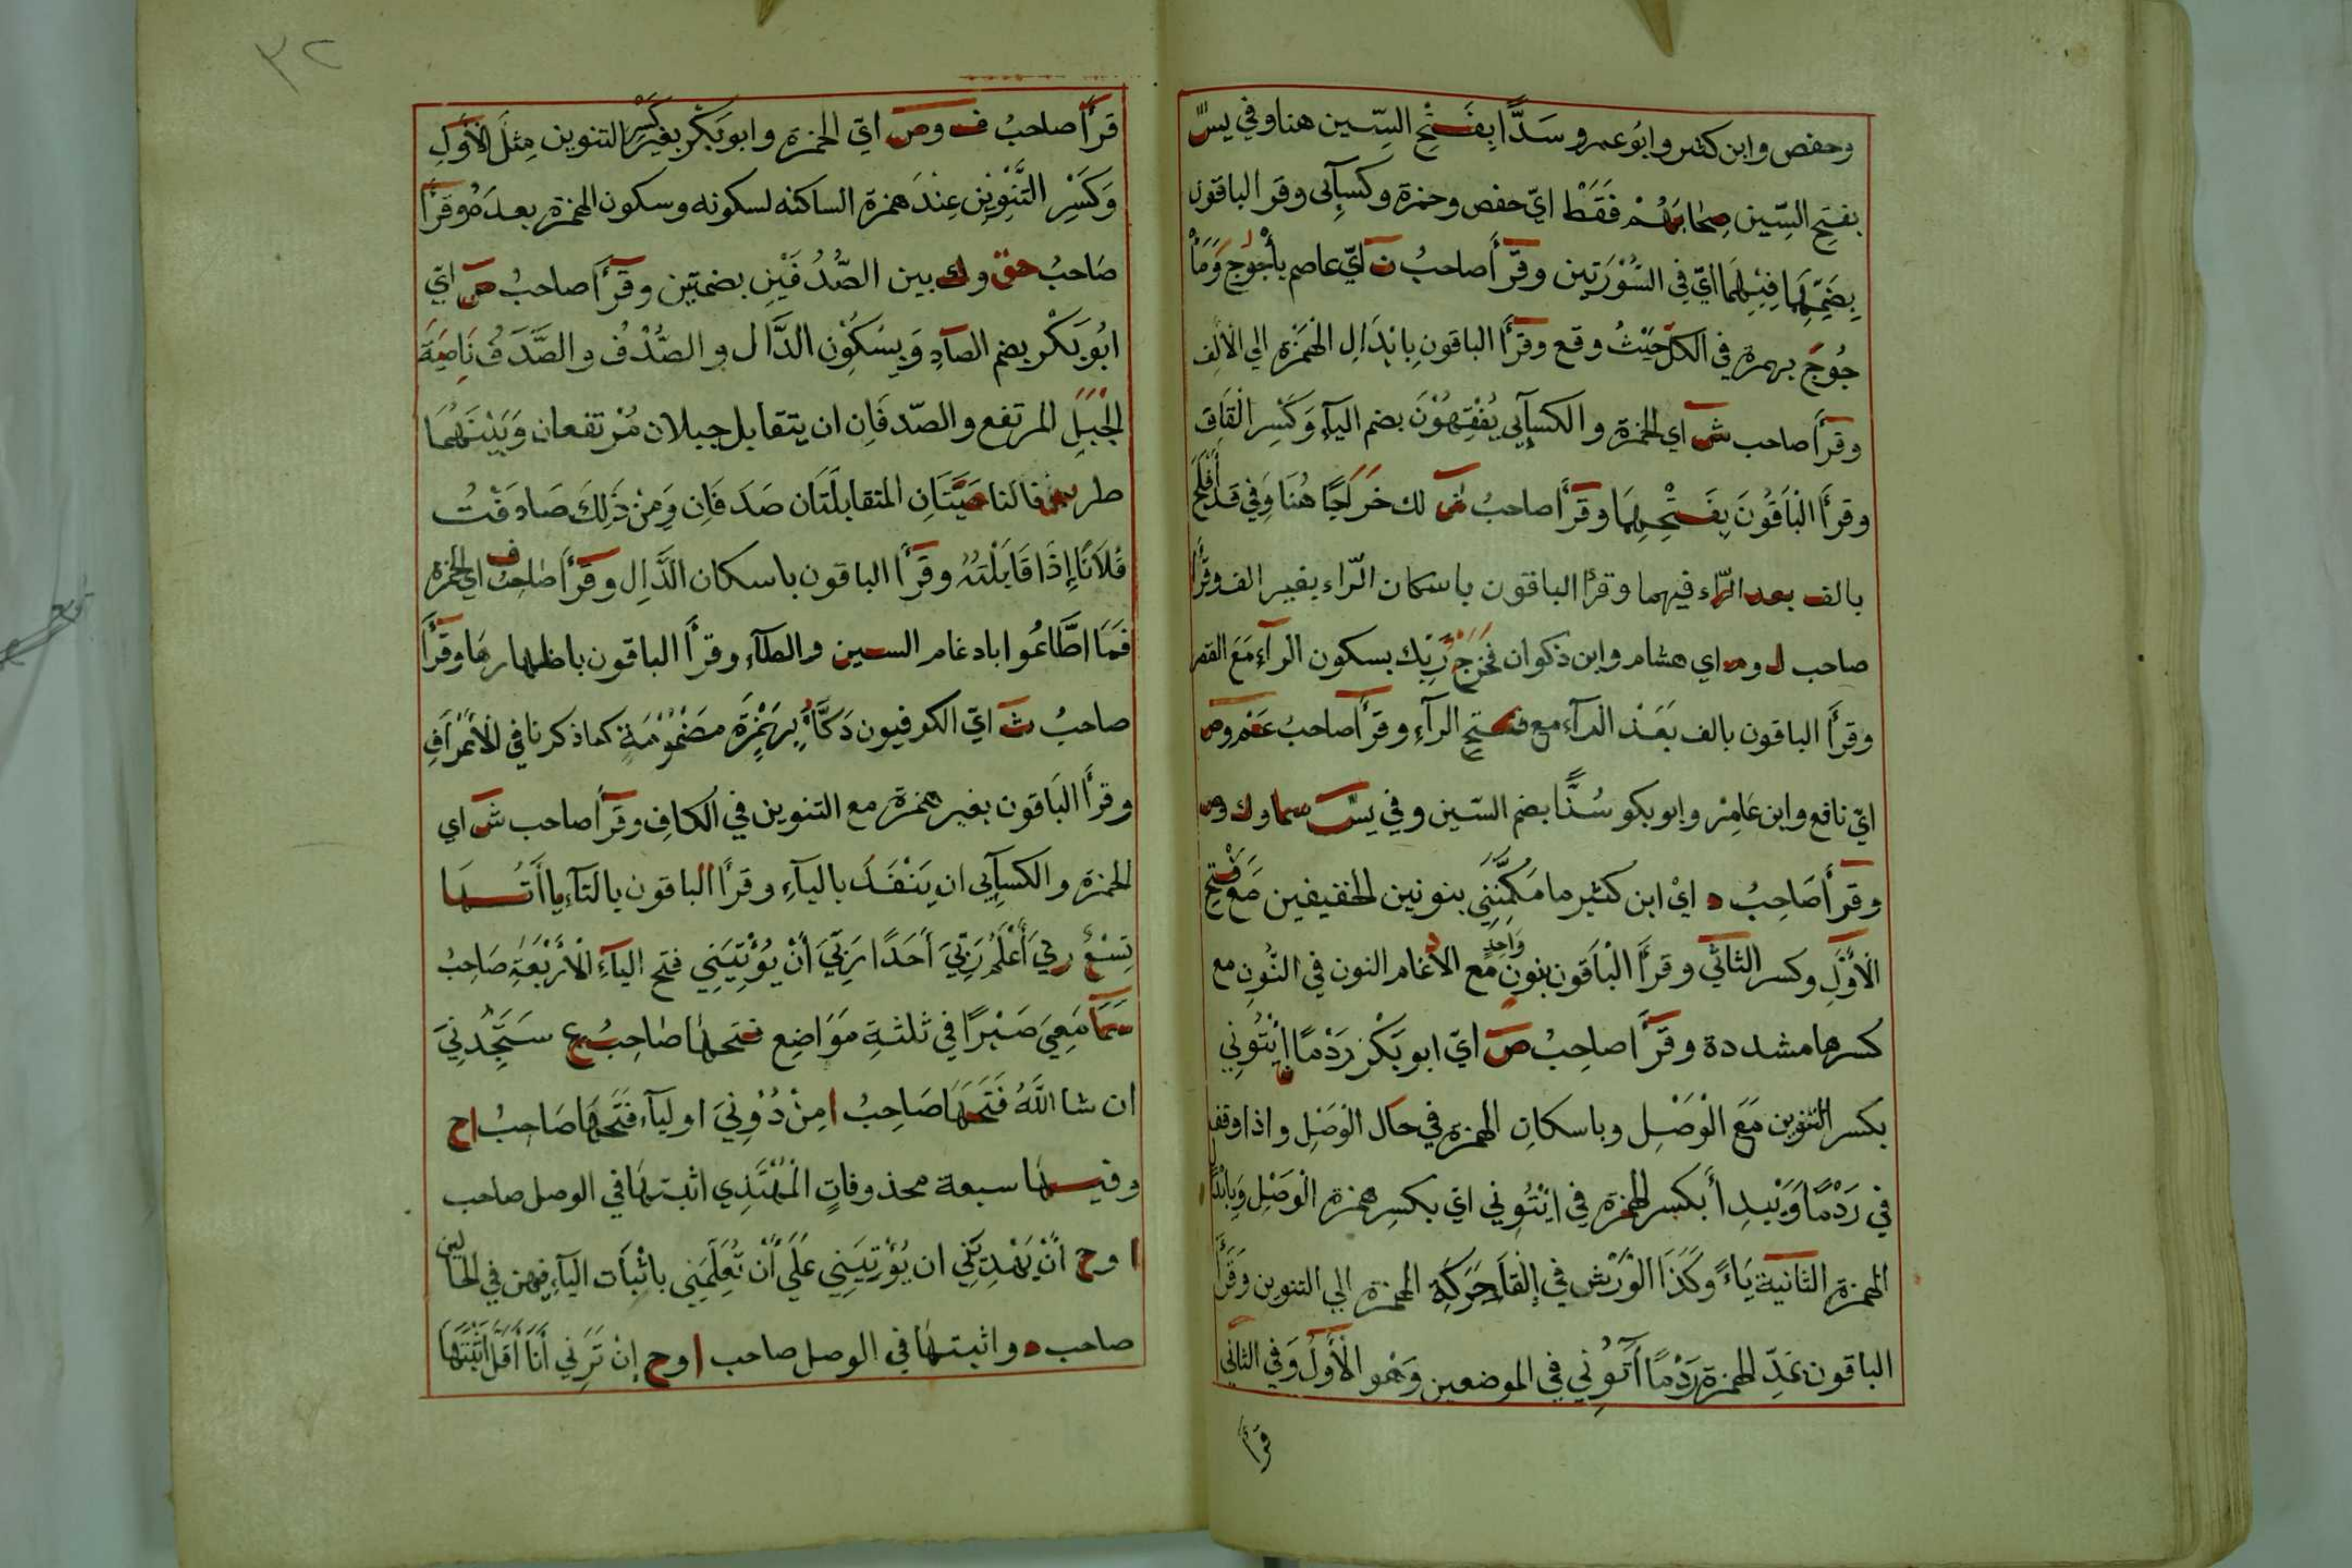 وحفص وابن كثير وابو عمرو سَدًّا بِفَتْحِ السِّين هنا وفي يسّ
بفتح السِّين صحابهم فَقَطْ ايّ حفص وحمزة وكسآئى وقرا الباقون
بِضَمِّهَا فِيْهِمَا ايّ في السُّوْرَتين وقَرَأَ صاحبُ ن ايّ عاصم يأْجُوجَ وَمَأْ
جُوجَ بهمزة في الكلّ حَيْثُ وقع وقرَأَ الباقون بِابْدَالِ الهَمْزةِ الي الألِف
وقرَأَ صاحب ش اي الحمزة والكسآئي يُفْقِهُوْنَ بضم اليآءِ وَكَسْرِ القَافِ
وقرَأَ الْبَاقُونَ بِفَتْحِهِمَا وقَرَأَ صاحبُ ش لك خَرَاجًا هُنَا وَفي قَدْ أَفْلَحَ
بالف بعد الرّاء فيهما وقرأ الباقون باسكان الرّاء بغير الف وقرَأَ
صاحب ل وم اي هشام وابن ذكوان فَخَرْجُ رَبِّك بسكون الرآءِ مَعَ القصر
وقرَأَ الباقون بالف بَعْدَ الرآء مع فتح الرآءِ وقرَأَ صاحبُ عم وص
ايّ نافع وابن عَامِرْ وابو بكر سُدًّا بضم السّين وفي يسٓ سما وك وص
وقرَأَ صَاحِبُ د ايْ ابن كثير ما مَكَّنَنِي بنونين الخفيفين مَعَ فَتْحِ
الْأوَّلِ وكسر الثاني وقرَأَ الْبَاقون بنونٍ وَاحِدٍ مع الادغام النون في النُّونِ مع
كسرها مشددة وقَرَأَ صاحِبُ ص ايّ ابو بَكْر رَدْمًا اِيْتُوني
بكسر التنوين مَعَ الْوَصْلِ وباسكانِ الهمزة في حَال الْوَصْلِ واذا وقف
في رَدْمًا وَيَبْدِأ بكسر الهمزة في ائْتُوني ايّ بكسر همزة الْوَصْلِ وَبِابْدَا
الهمزة الثانية يَاءً وكَذَا الْوَرْش في اِلْقاء حَرَكَةِ الهمزة الي التنوين وقَرَأَ
الباقون بمَدِّ الهمزة رَدْمًا آتُوني في الموضعين وَهْو الأَوَّلُ وَفي الثانى
قرأ
٣٢
قرَأَ صاحبُ ف وص ايّ الحمزة وابو بَكْر بغير كَسْرِ التنوين مِثلَ الْأوَّلِ
وَكَسْرِ التَّنْوِينِ عِنْدَ همزة الساكنه لسكونه وسكون الهمزة بعدَهُ وقرَأَ
صَاحبُ حق وك بين الصُّدُفَيْنِ بضمتين وقَرَأَ صاحبُ ص ايّ
ابُو بَكْر بضم الصآدِ وَبِسُكُوْن الدَّال و الصُّدْفُ و الصَّدَفُ نَاصِيَةُ
الجَبَلِ المرتفع والصّدفَانِ ان يتقابل جبلان مُرْتفعان وَبَيْنَهُمَا
طريق فالناصيَتَانِ المتقابلَتَان صَدَفَانِ وَمِنْ ذَلِكَ صَادَفْتُ
فُلَانًا إِذَا قَابَلْتَهُ وقرَأَ الباقون باسكان الدَّال وقَرَأَ صاحبُ ف اي الحمزة
فَمَا اطَّاعُوا بادغام السين والطآءِ وقرَأَ الباقون باظهارهَا وقرَأَ
صاحبُ ث ايّ الكوفيون دَكَّآءُ بِهَمْزَةٍ مضْمُوْمَةٍ كما ذكرنا في الْأعْرَافِ
وقرَأَ الْبَاقون بغير همزة مع التنوين في الكافِ وقَرَأَ صاحب ش اي
الحمزة والكسآئي ان يَنْفَدَ باليآءِ وقرَأَ الباقون بالتآءِ يا أتُها
تِسْعٌ رَبيَ أَعْلَمُ رَبّيَ أَحَدًا رَبّيَ أَنْ يُؤْتِيَنِي فتح اليآءِ الْأرْبَعَةِ صَاحِبُ
سَمَا مَعِيَ صَبْرًا في ثلثةِ مَوَاضِع فتحها صَاحِبُ ع سَتَجِدُنِيَ
ان شا اللّٰهُ فَتَحَهَا صَاحِبُ ا مِنْ دُوْنِيَ اوليآء فَتَحَهَا صَاحِبُ اح
وفيها سبعة محذوفاتٍ الْمُهْتَدِي اثبتها في الوصل صاحب
ا وح انْ يَهْدِيَنِي ان يُؤْتِيَنِي عَلَى أَنْ تُعَلِّمَنِي باثْبَات اليآءِ فيهن في الحالين
صاحب د واثبتها في الوصل صاحب ا وح إنْ تَرَني أَنَا أَقَلَّ اثبتها